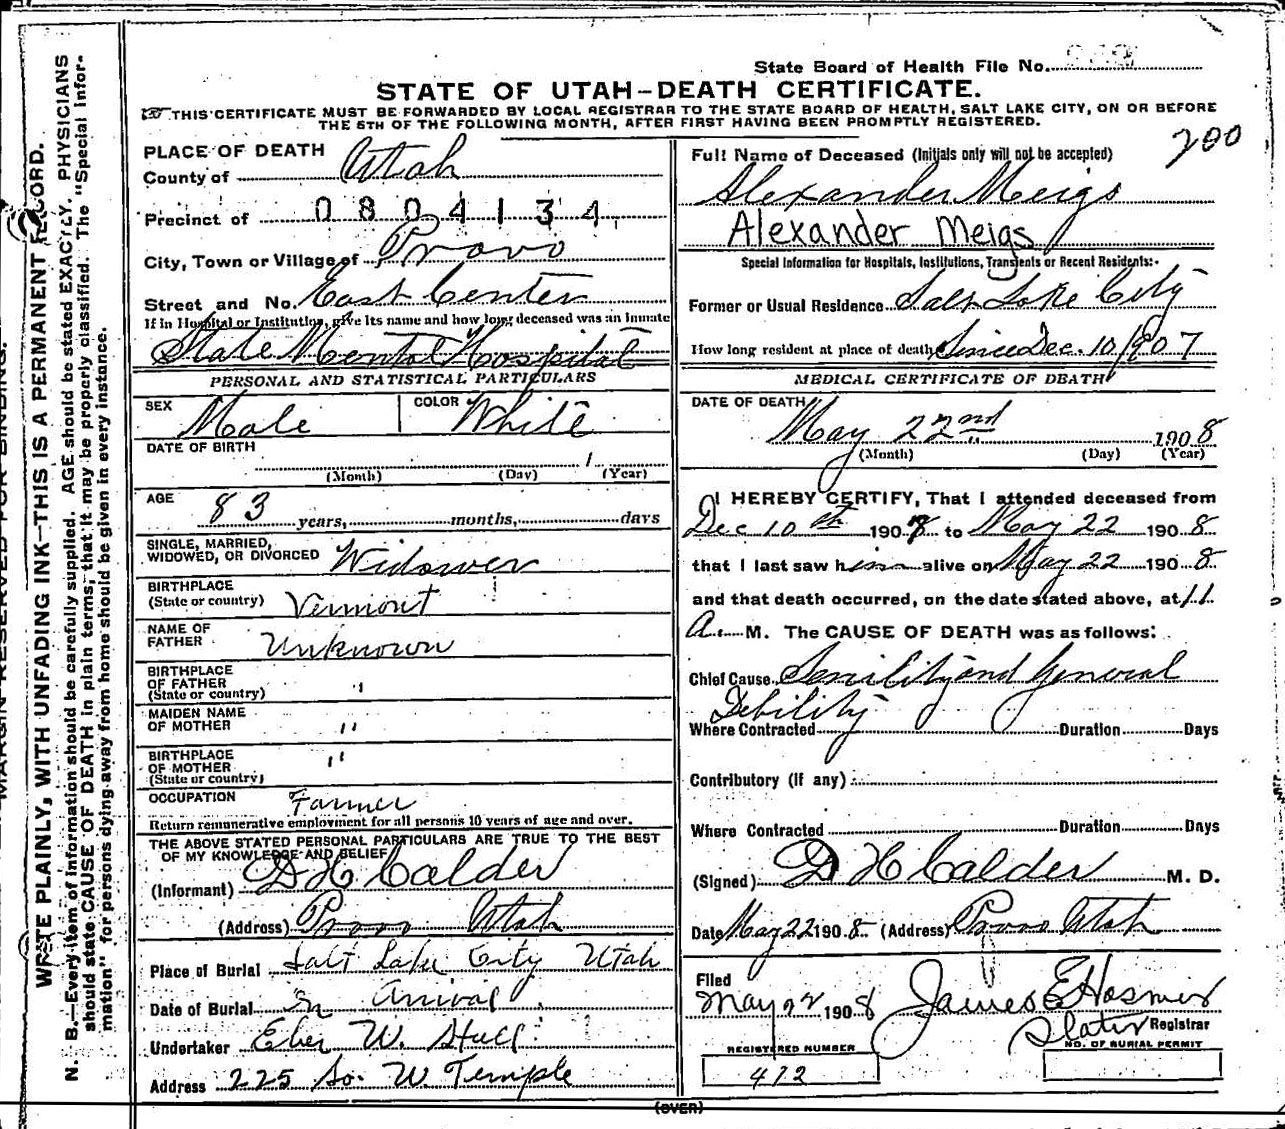 State Board of Health File No.
STATE OF UTAH—DEATH CERTIFICATE.
THIS CERTIFICATE MUST BE FORWARDED BY LOCAL REGISTRAR TO THE STATE BOARD OF HEALTH, SALT LAKE CITY, ON OR BEFORE
THE 5TH OF THE FOLLOWING MONTH, AFTER FIRST HAVING BEEN PROMPTLY REGISTERED.
200
PLACE OF DEATH
County of Utah
Precinct of 0804134
City, Town or Village of Provo
Street and No. East Center
If in Hospital or Institution, give its name and how long deceased was an inmate
State Mental Hospital
PERSONAL AND STATISTICAL PARTICULARS
SEX Male COLOR White
DATE OF BIRTH
1
(Month) (Day) (Year)
AGE
83 years, months, days
SINGLE, MARRIED,
WIDOWED, OR DIVORCED Widower
BIRTHPLACE
(State or country) Vermont
NAME OF
FATHER Unknown
BIRTHPLACE
OF FATHER
(State or country) "
MAIDEN NAME
OF MOTHER "
BIRTHPLACE
OF MOTHER "
(State or country)
OCCUPATION Farmer
Return remunerative employment for all persons 10 years of age and over.
THE ABOVE STATED PERSONAL PARTICULARS ARE TRUE TO THE BEST
OF MY KNOWLEDGE AND BELIEF
(Informant) D H Calder
(Address) Provo Utah
Place of Burial Salt Lake City Utah
Date of Burial On Arival
Undertaker Eber W. Hall
Address 225 So. W. Temple
Full Name of Deceased (Initials only will not be accepted)
Alexander Meigs
Alexander Meigs
Special Information for Hospitals, Institutions, Transients or Recent Residents:-
Former or Usual Residence Salt Lake City
How long resident at place of death Since Dec. 10/1907
MEDICAL CERTIFICATE OF DEATH
DATE OF DEATH
May 22nd 1908
(Month) (Day) (Year)
I HEREBY CERTIFY, That I attended deceased from
Dec 10th 1907 to May 22 1908
that I last saw him alive on May 22 1908
and that death occurred, on the date stated above, at 11
A. M. The CAUSE OF DEATH was as follows:
Chief Cause Senility and General
Debility
Where Contracted Duration Days
Contributory (if any)
Where Contracted Duration Days
(Signed) D H Calder M. D.
Date May 22 1908 (Address) Provo Utah
Filed
May 22 1908 James E Hosmer
Registrar
REGISTERED NUMBER
472
NO. OF BURIAL PERMIT
(OVER)
MARGIN RESERVED FOR BINDING.
WRITE PLAINLY, WITH UNFADING INK—THIS IS A PERMANENT RECORD.
N. B.—Every item of information should be carefully supplied. AGE should be stated EXACTLY. PHYSICIANS
should state CAUSE OF DEATH in plain terms, that it may be properly classified. The "Special Infor-
mation" for persons dying away from home should be given in every instance.